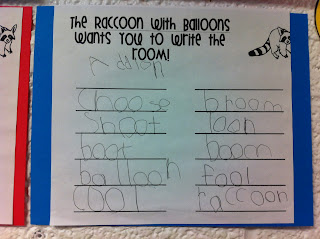 The Raccoon with Balloons
wants you to write the
room!
Choose
Shoot
boot
balloon
cool
broom
loon
boom
fool
raccoon